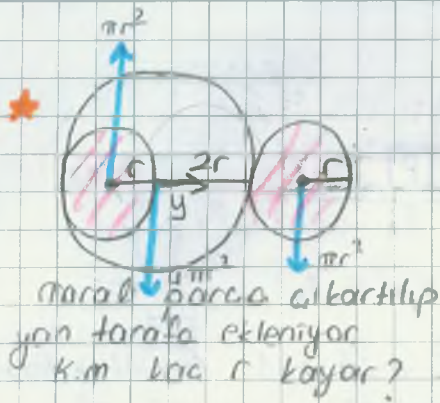 πr²
r 2r r
y
4πr² πr²
taralı parça çıkartılıp
yan tarafa ekleniyor
k.m kaç r kayar?